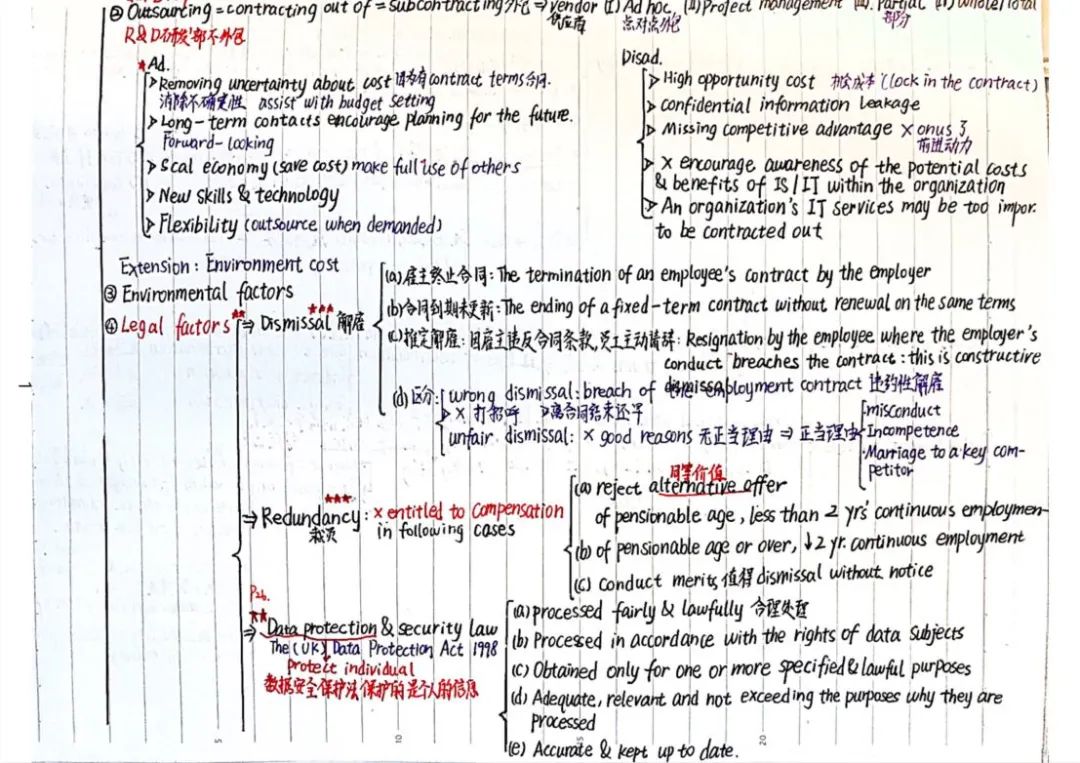 ② Outsourcing = contracting out of = subcontracting 外包 ⇒ vendor (I) Ad hoc, (II) Project management (III). Partial (IV) Whole/Total
供应商 点对点外包 部分
R&D研发部不外包
★Ad.
> Removing uncertainty about cost 因为有contract terms合同.
消除不确定性 assist with budget setting
> Long-term contacts encourage planning for the future.
Forward-looking
> Scal economy (save cost) make full use of others
> New skills & technology
> Flexibility (outsource when demanded)
Disad.
> High opportunity cost 机会成本 (lock in the contract)
> confidential information leakage
> Missing competitive advantage × onus 了
前进动力
> × encourage awareness of the potential costs
& benefits of IS/IT within the organization
> An organization's IT services may be too impor.
to be contracted out
Extension: Environment cost
③ Environmental factors
④ Legal factors ★★
⇒ Dismissal 解雇 ★★★
(a) 雇主终止合同: The termination of an employee's contract by the employer
(b) 合同到期未更新: The ending of a fixed-term contract without renewal on the same terms
(c) 推定解雇: 因雇主违反合同条款, 员工主动请辞: Resignation by the employee where the employer's
conduct breaches the contract: this is constructive
dismissal
(d) 区分: wrong dismissal: breach of employment contract 违约性解雇
> × 打招呼 > 离合同结束还早
unfair dismissal: × good reasons 无正当理由 ⇒ 正当理由
misconduct
Incompetence
Marriage to a key com-
petitor
⇒ Redundancy: ★★★ × entitled to compensation
裁员 in following cases
同等价值
(a) reject alternative offer
of pensionable age, less than 2 yrs' continuous employmen-
(b) of pensionable age or over, ↓2 yr. continuous employment
(c) conduct merits 值得 dismissal without notice
P26.
★★
⇒ Data protection & security law
The (UK) Data Protection Act 1998
Protect individual
数据安全保护法保护的是个人的信息
(a) processed fairly & lawfully 合理处理
(b) Processed in accordance with the rights of data subjects
(c) Obtained only for one or more specified & lawful purposes
(d) Adequate, relevant and not exceeding the purposes why they are
processed
(e) Accurate & kept up to date.
1
5
10
15
20